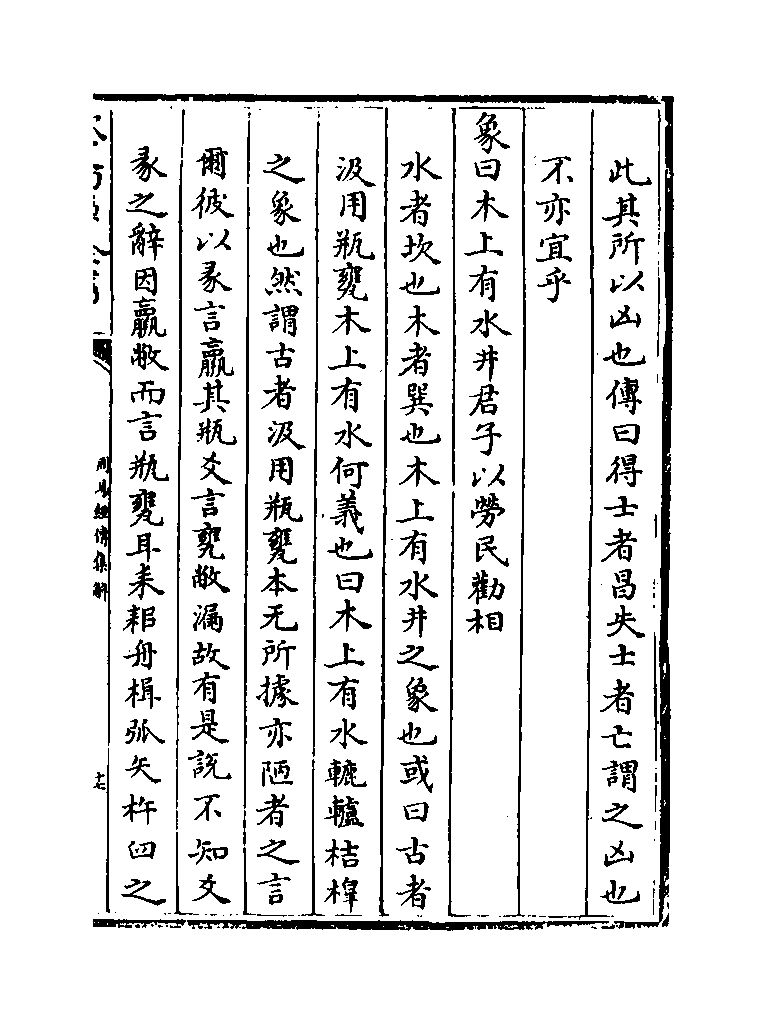 此其所以凶也傳曰得士者昌失士者亡謂之凶也
不亦宜乎
象曰木上有水井君子以勞民勸相
水者坎也木者巽也木上有水井之象也或曰古者
汲用瓶甕木上有水何義也曰木上有水轆轤桔橰
之象也然謂古者汲用瓶甕本无所據亦陋者之言
爾彼以彖言羸其瓶爻言甕敝漏故有是説不知爻
彖之辭因羸敝而言瓶甕耳耒耜舟楫弧矢杵臼之
周易經傳集解
十七